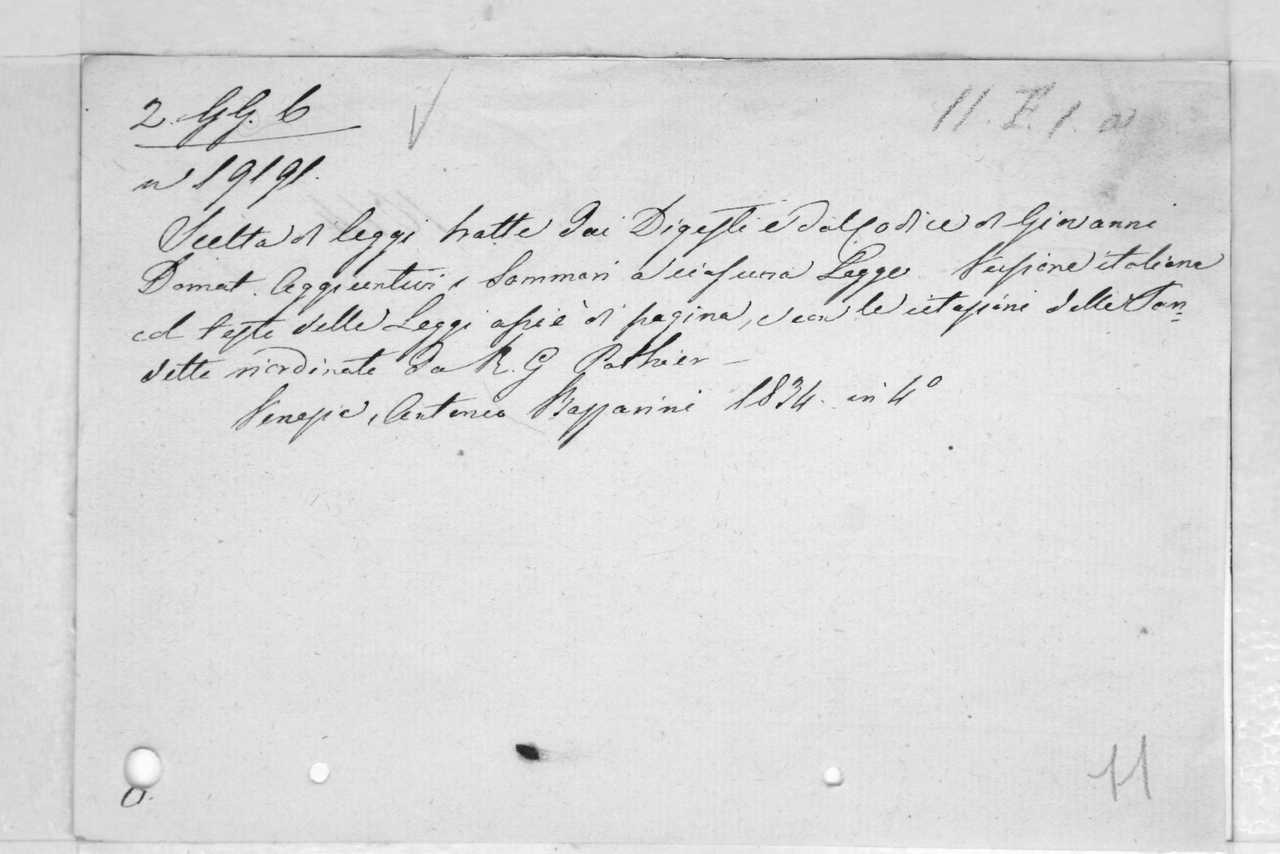 2. GG. 6
11. F. 1. a
n 19191.
Scelta di leggi tratte dai Digesti e dal Codice di Giovanni
Domat. Aggiuntivi i Sommari a ciascuna Legge. Versione italiana
col testo delle Leggi appiè di pagina, e con le citazioni delle Pan=
dette riordinate da R. G Pothier –
Venezia, Antonio Bazzarini 1834. in 4º
11